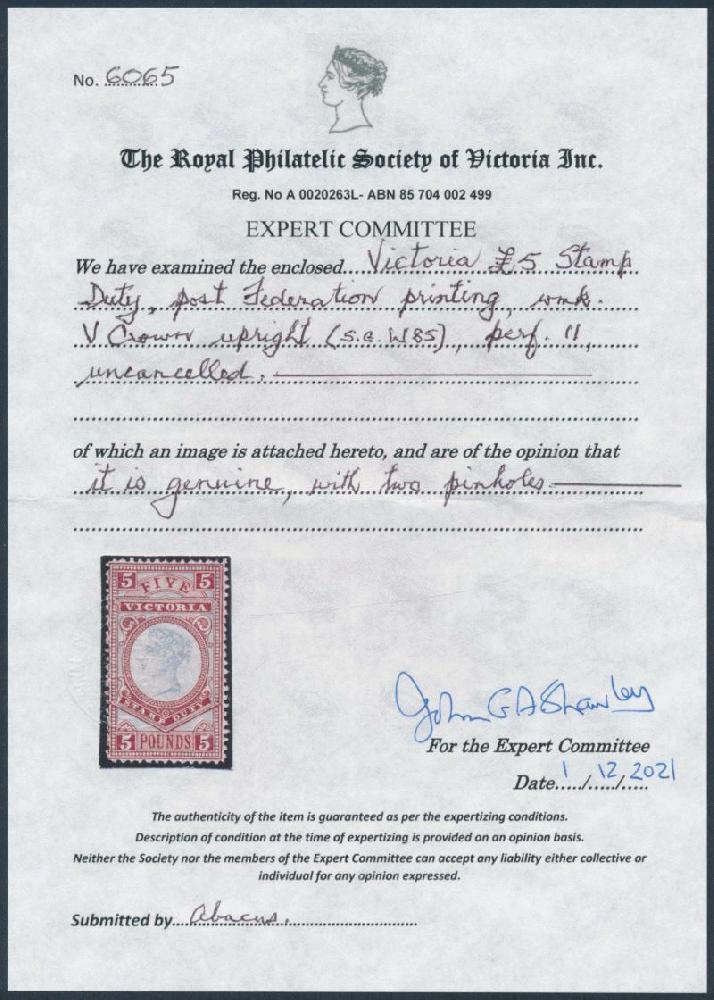 No. 6065
The Royal Philatelic Society of Victoria Inc.
Reg. No A 0020263L- ABN 85 704 002 499
EXPERT COMMITTEE
We have examined the enclosed.... Victoria £5 Stamp
Duty, post Federation printing, wmk.
V Crown upright (S.G. W85), perf. 11,
uncancelled.
of which an image is attached hereto, and are of the opinion that
it is genuine, with two pinholes
5 FIVE 5
VICTORIA
STAMP DUTY
5 POUNDS 5
For the Expert Committee
Date 1/12/2021
The authenticity of the item is guaranteed as per the expertizing conditions.
Description of condition at the time of expertizing is provided on an opinion basis.
Neither the Society nor the members of the Expert Committee can accept any liability either collective or
individual for any opinion expressed.
Submitted by.... Abacus.